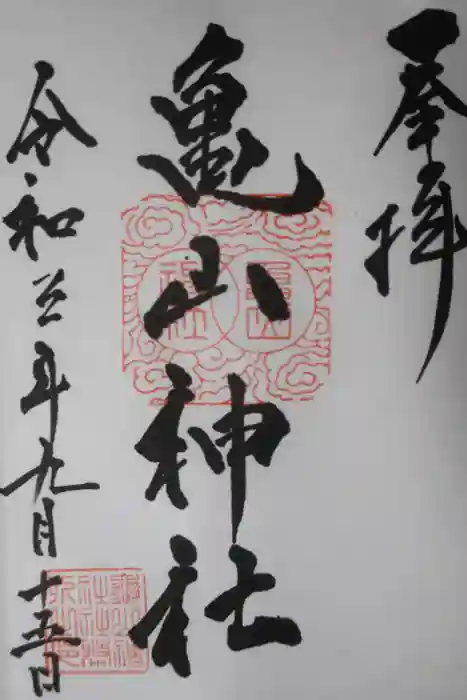 奉拝
亀山神社
令和三年九月十五日